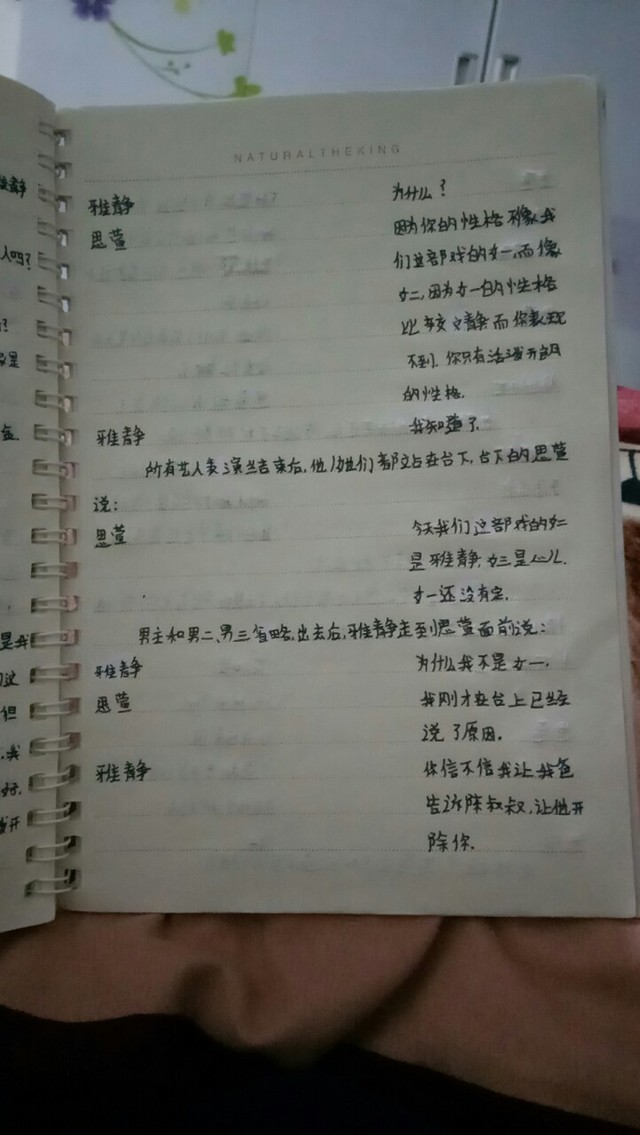 NATURALTHEKING
雅静 为什么?
思萱 因为你的性格不像我
们这部戏的女一,而像
女二,因为女一的性格
比较文静而你表现
不到.你只有活泼开朗
的性格.
雅静 我知道了.
所有艺人表演结束后,他/她们都站在台下,台下的思萱
说:
思萱 今天我们这部戏的女二
是雅静,女三是心儿.
女一还没有定.
男主和男二、男三省略.出去后,雅静走到思萱面前说:
雅静 为什么我不是女一.
思萱 我刚才在台上已经
说了原因.
雅静 你信不信我让我爸
告诉陈叔叔,让他开
除你.
人吗?
是我
但
.我
好.
开